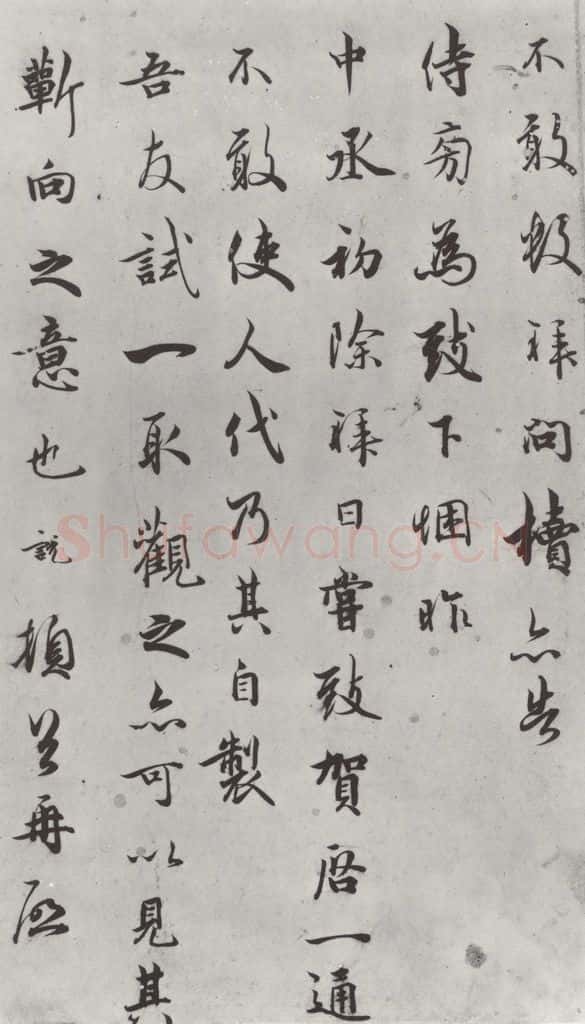 不敢數拜問櫝亦告
侍旁爲致下悃昨
中丞初除拜日嘗致賀啓一通
不敢使人代乃其自製
吾友試一取觀之亦可以見其
蘄向之意也說頓首再啓
Shufawang.CN